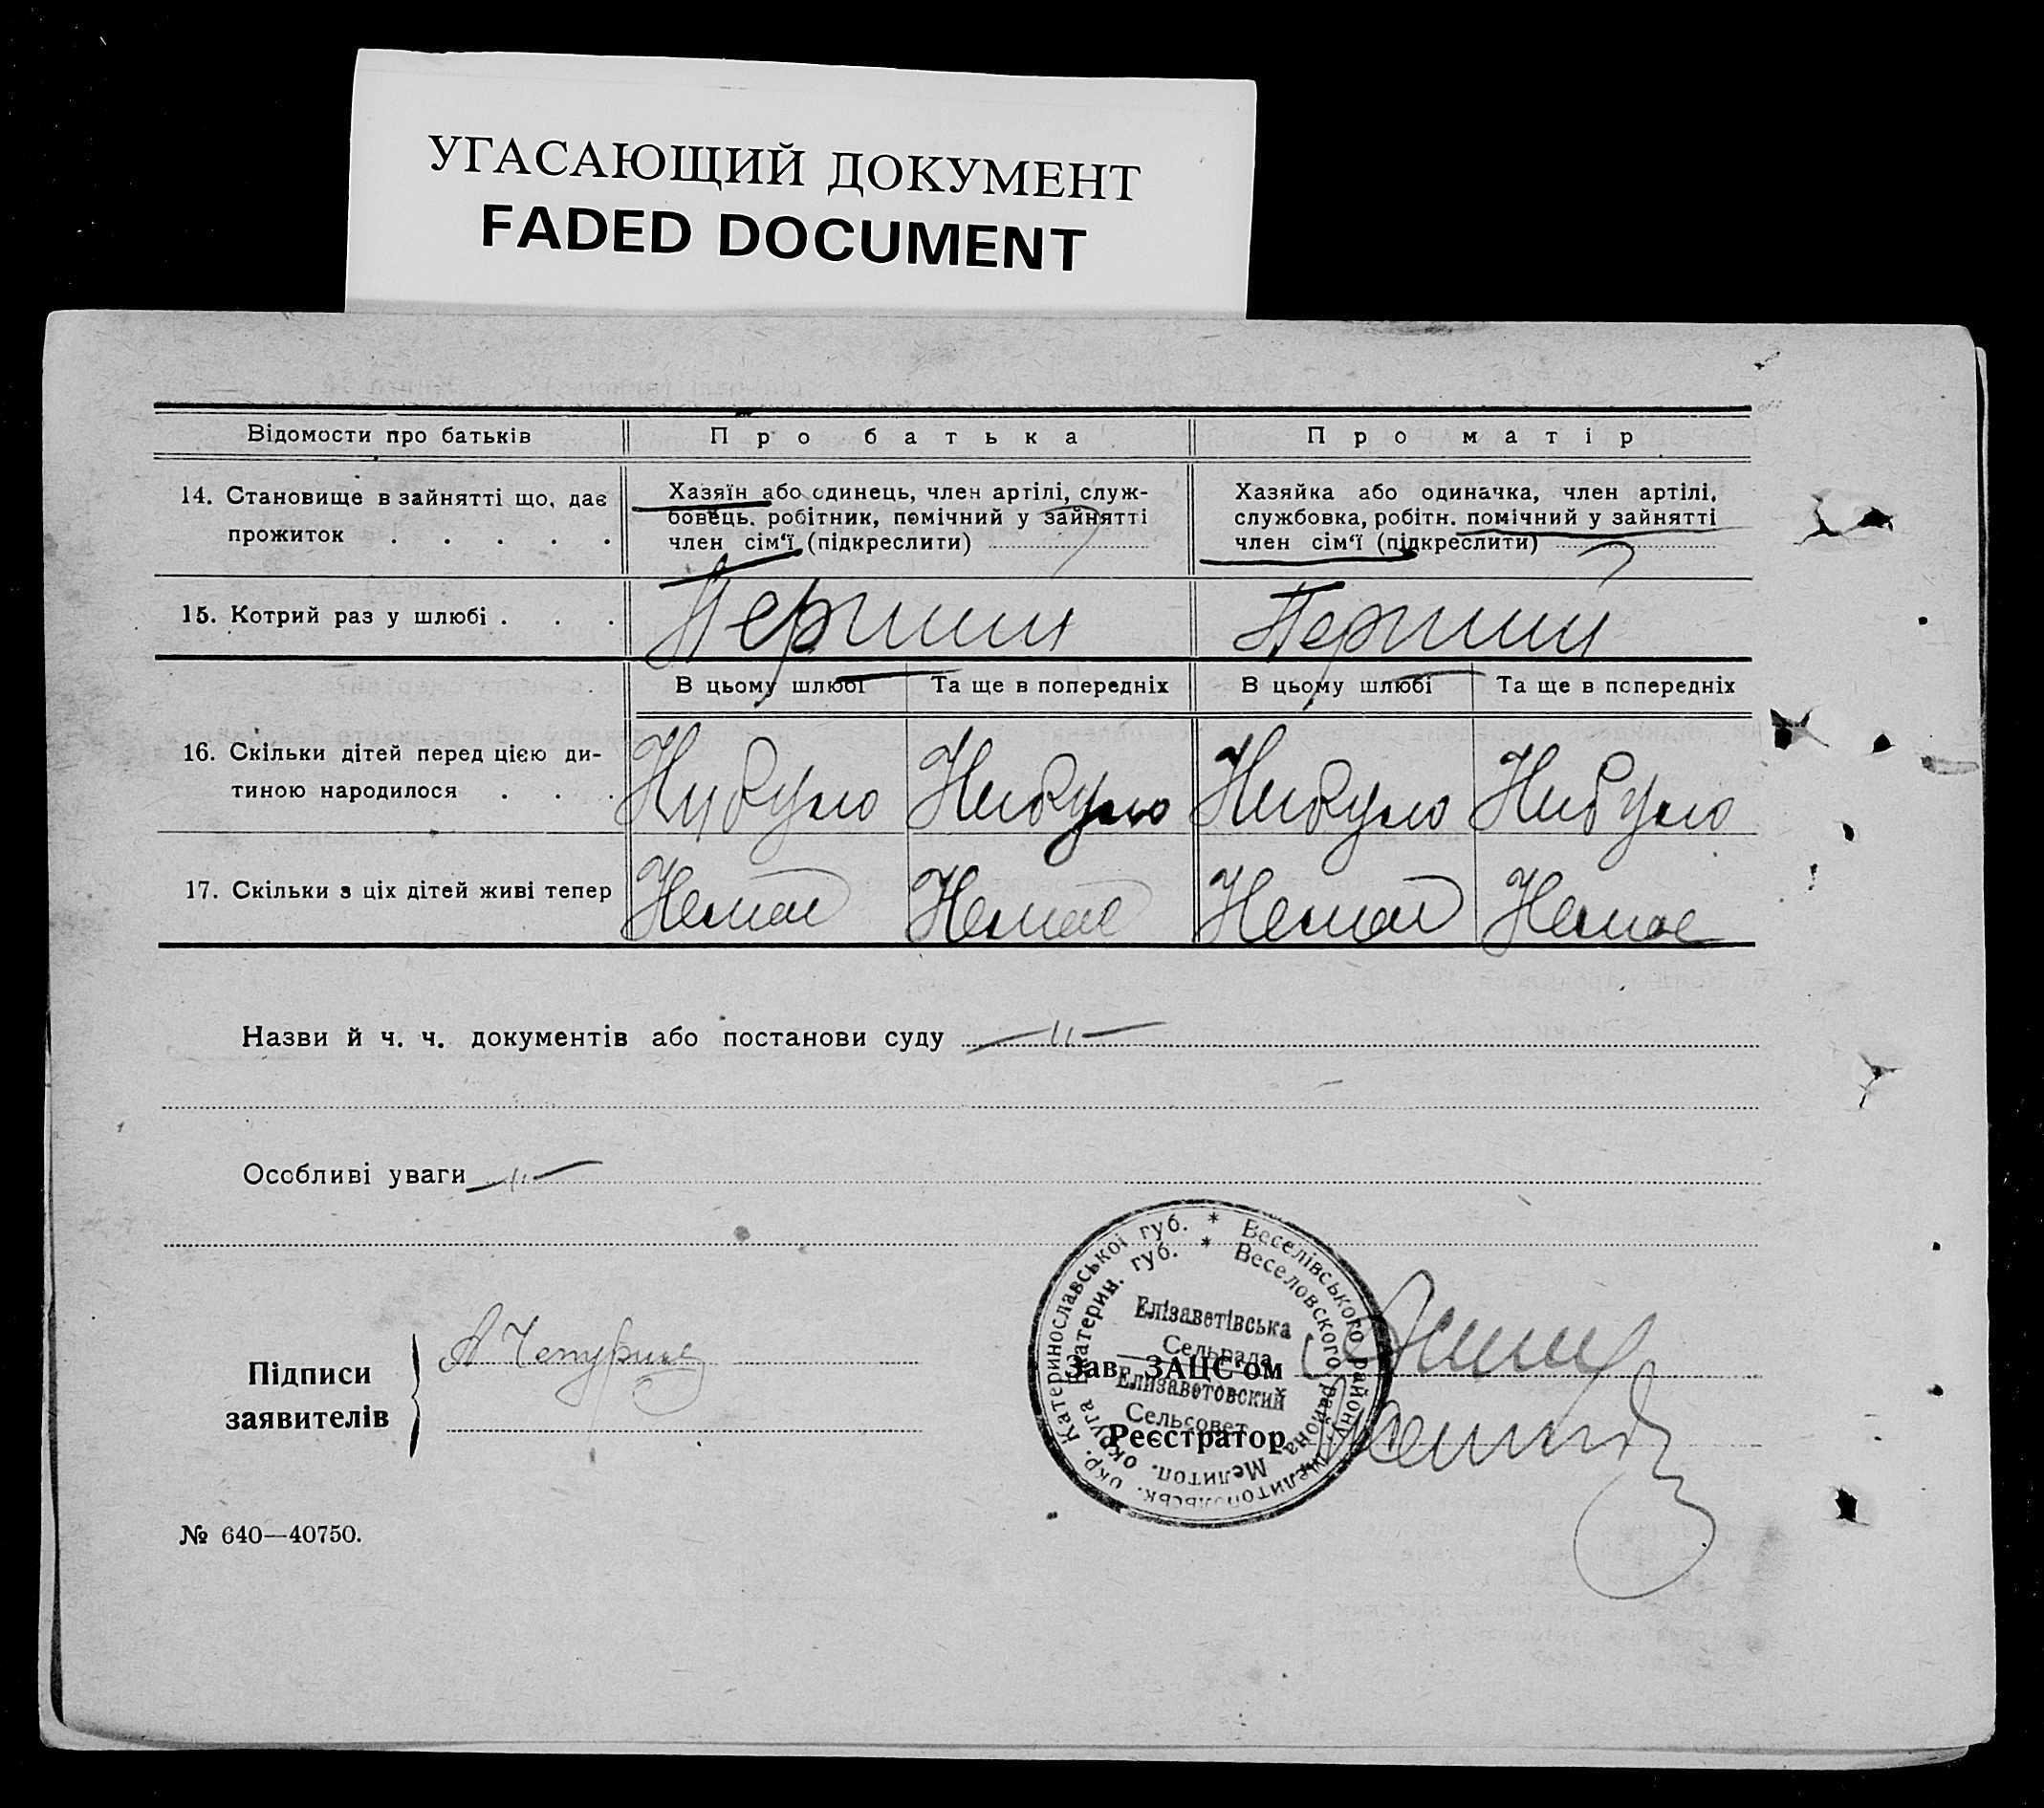 УГАСАЮЩИЙ ДОКУМЕНТ
FADED DOCUMENT
Відомости про батьків
Про батька
Про матір
14. Становище в зайнятті що, дає
прожиток . . . . .
Хазяїн або одинець, член артілі, служ-
бовець. робітник, помічний у зайнятті
член сім'ї (підкреслити)
Хазяйка або одиначка, член артілі,
службовка, робітн. помічний у зайнятті
член сім'ї (підкреслити)
15. Котрий раз у шлюбі . . .
Перший
Перший
В цьому шлюбі
Та ще в попередніх
В цьому шлюбі
Та ще в попередніх
16. Скільки дітей перед цією ди-
тиною народилося . . .
Нибуло
Нибуло
Нибуло
Нибуло
17. Скільки з ціх дітей живі тепер
Немає
Немає
Немає
Немає
Назви й ч. ч. документів або постанови суду — ıı —
Особливі уваги — ıı —
Підписи
заявителів
Зав. ЗАЦС'ом
Реєстратор
Веселівського району, Мелитопольськ. окр. Катеринославської губ. *
Веселовского района, Мелитоп. округа Екатерин. губ. *
Елізаветівська
Сельрада
Елизаветовский
Сельсовет
№ 640—40750.